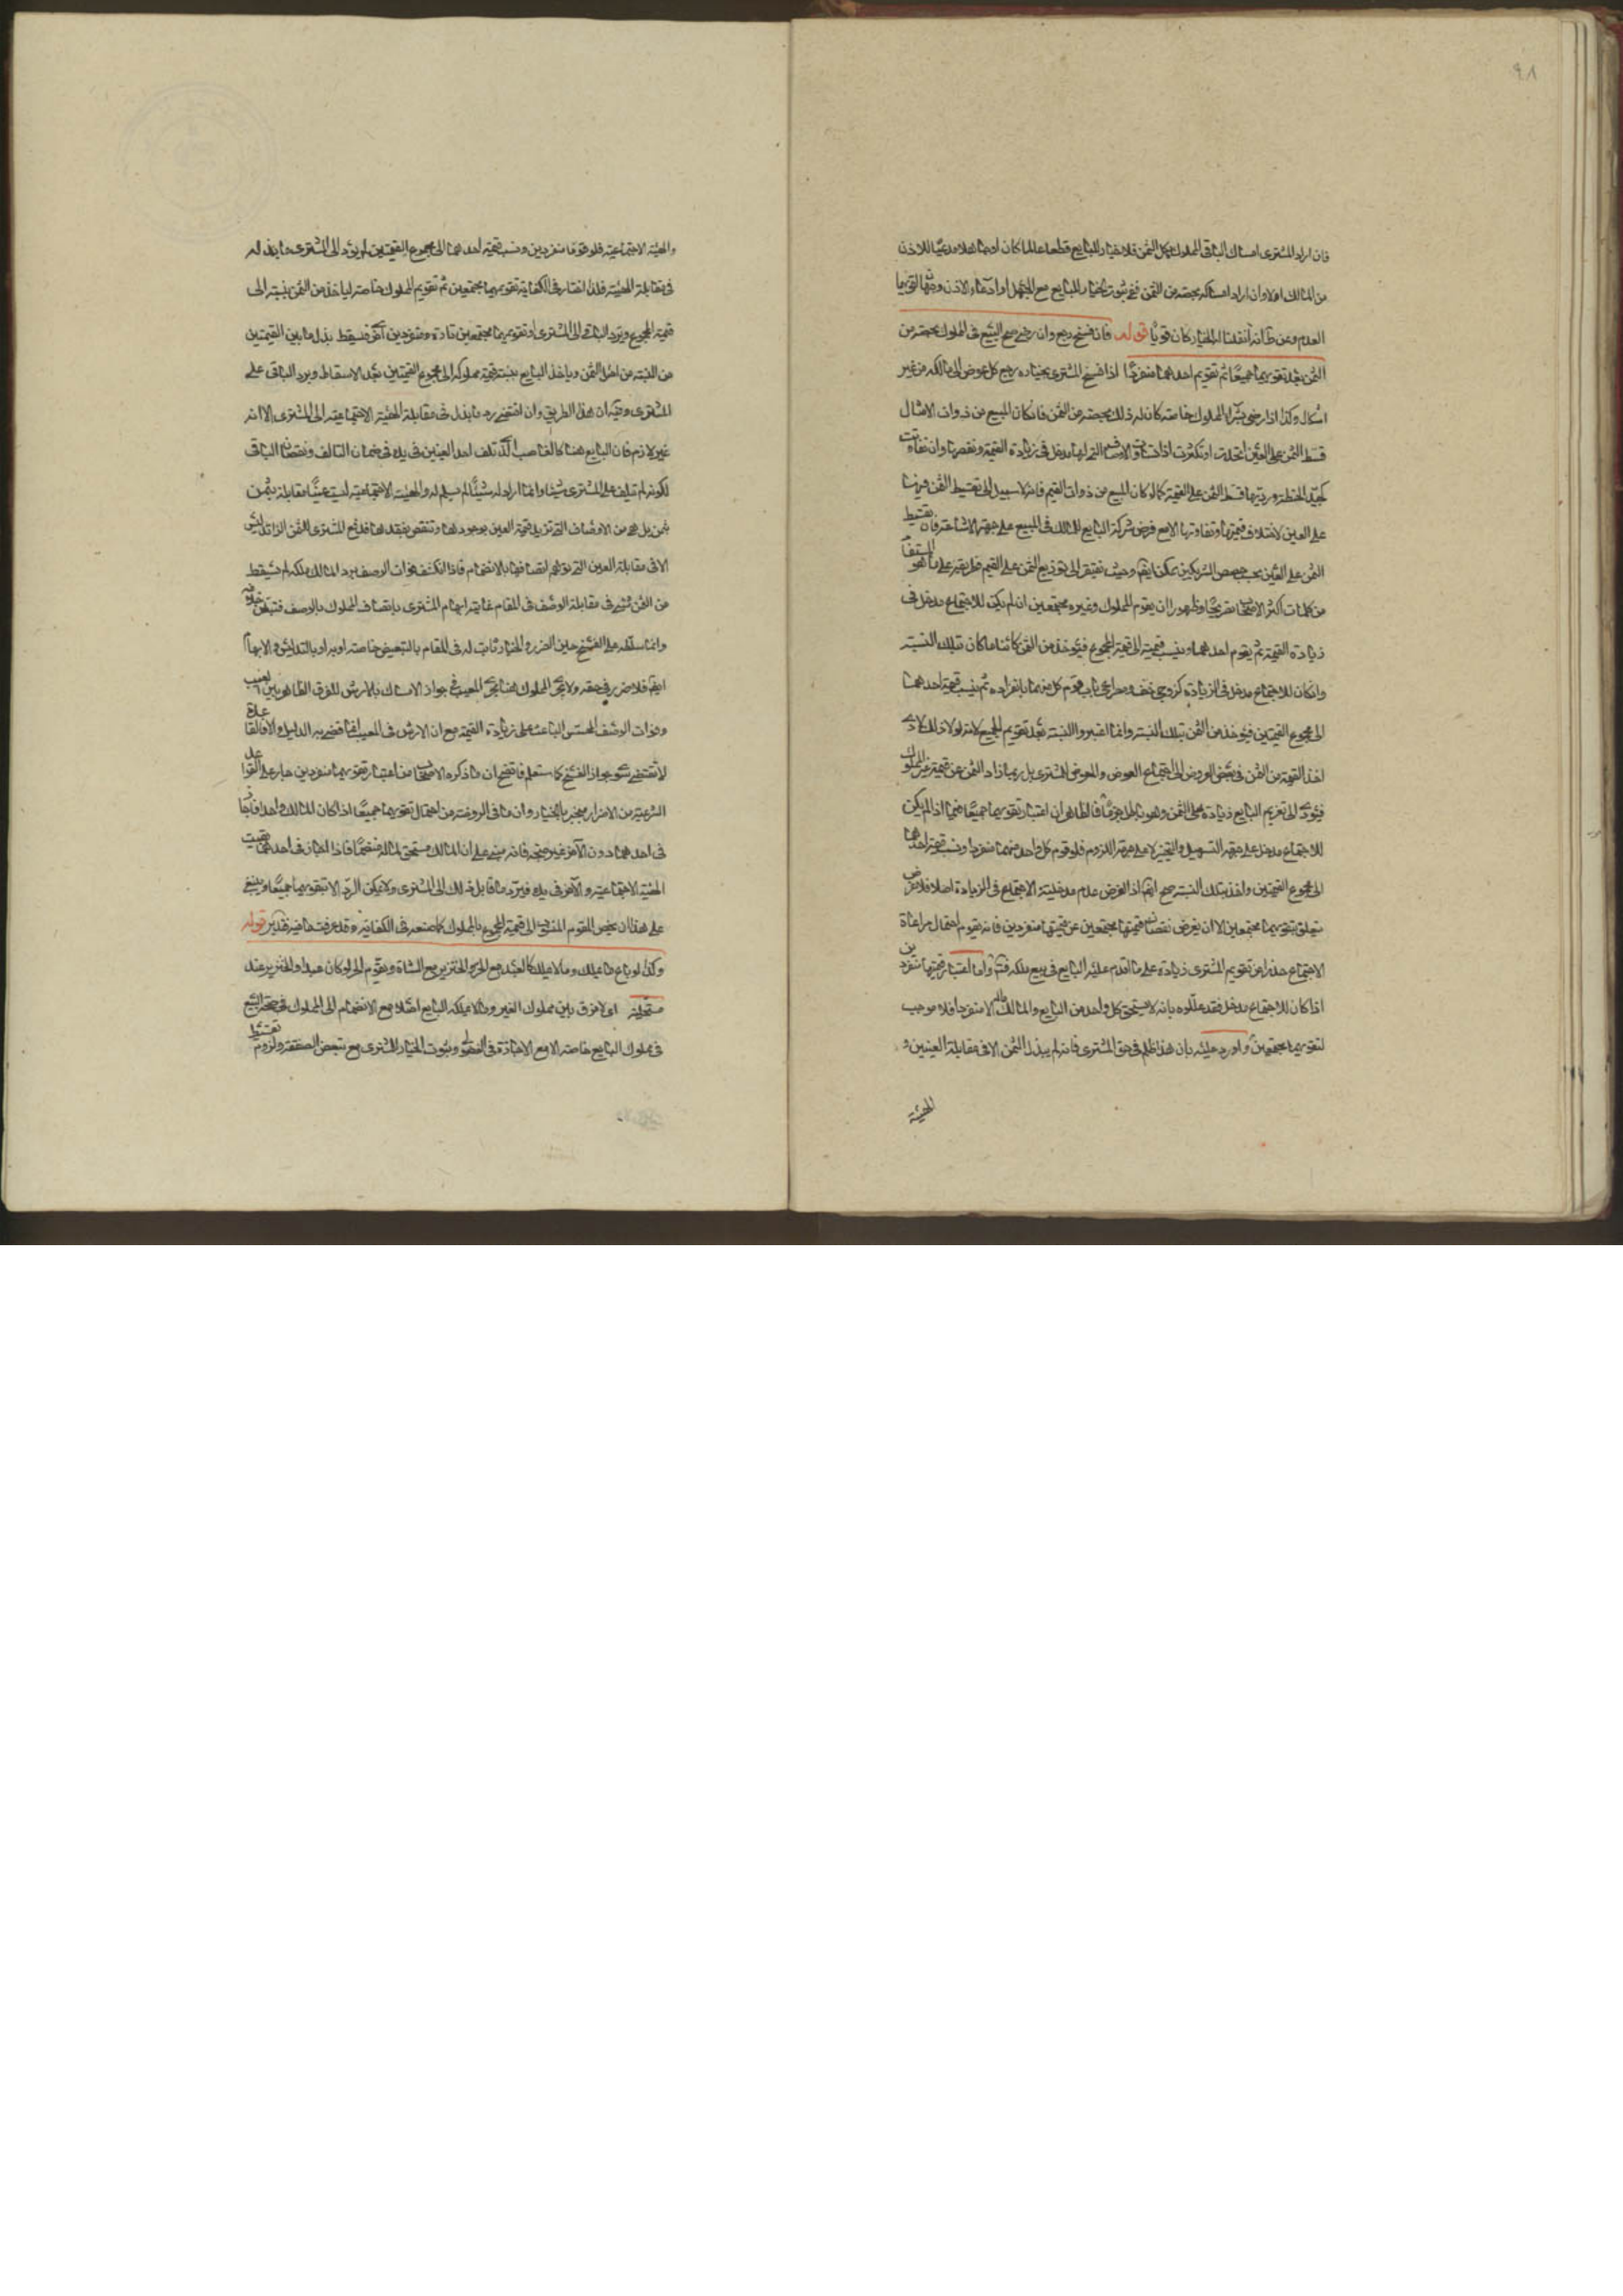 ٩٨
فان اراد المشترى امساك الباقى المملوك بكل الثمن فلا خيار للبايع قطعا عالما كان او جاهلا او مدعيا للاذن
من المالك اولا وان اراد امساكه بحصته من الثمن ففى ثبوت الخيار للبايع مع الجهل او ادعاء الاذن وجهان اقويهما
العدم وعن ط انه ان قلنا له الخيار كان قويا قوله فان فسخ رجع وان رضى صح البيع فى المملوك بحصته من
الثمن بعد تقويمهما جميعا ثم تقويم احدهما منفردا اذا فسخ المشترى بخياره رجع كل عوض الى مالكه من غير
اشكال وكذا اذا رضى بشراء المملوك خاصة كان له ذلك بحصته من الثمن فان كان المبيع من ذوات الامثال
قسط الثمن على العين اتحدت او تكثرت اذا تساوت الاوصاف التى لها مدخل فى زيادة القيمة ونقصها وان تفاوتت
كجيد الحنطة ورديها قسط الثمن على القيمة كما لو كان المبيع من ذوات القيم فانه لا سبيل الى تقسيط الثمن فيها
على العين لاختلاف قيمتها وتفاوتها الا مع فرض شركة البايع للمالك فى المبيع على جهة الاشاعة فان تقسيط
الثمن على العين بحسب حصص الشريكين ممكن ايضا وحيث نفتقر الى توزيع الثمن على القيم فطريقه على ما هو المستفاد
من كلمات اكثر الاصحاب تصريحا وظهورا ان يقوم المملوك وغيره مجتمعين ان لم يكن للاجتماع مدخل فى
زيادة القيمة ثم يقوم احدهما وينسب قيمته الى قيمة المجموع فيؤخذ من الثمن كائنا ما كان بتلك النسبة
وان كان للاجتماع مدخل فى الزيادة كزوجى خف ومصراعى باب قوم كل منهما بانفراده ثم ينسب قيمة احدهما
الى مجموع القيمتين فيؤخذ من الثمن بتلك النسبة وانما اعتبروا النسبة بعد تقويم الجميع لانه لولا ذلك لادى
اخذ القيمة من الثمن فى بعض الفروض الى اجتماع العوض والمعوض للمشترى بل ربما زاد الثمن عن قيمة غير المملوك
فيؤدى الى تغريم البايع زيادة على الثمن وهو باطل جزما فالظاهر ان اعتبار تقويمهما جميعا فيما اذا لم يكن
للاجتماع مدخل على جهة التسهيل والتخيير لا على جهة اللزوم فلو قوم كل واحد منهما منفردا ونسب قيمة احدهما
الى مجموع القيمتين واخذ بتلك النسبة صح ايضا اذ الفرض عدم مدخلية الاجتماع فى الزيادة اصلا فلا غرض
يتعلق بتقويمهما مجتمعين الا ان يفرض نقصان قيمتهما مجتمعين عن قيمتهما منفردين فانه يقوم احتمال مراعاة
الاجتماع حذرا من تقويم المشترى زيادة على ما اقدم عليه البايع فى بيع ملكه واما اعتبار قيمتهما منفردين
اذا كان للاجتماع مدخل فقد عللوه بانه لا يستحق كل واحد من البايع والمالك ماله الا منفردا فلا موجب
لتقويمهما مجتمعين واورد عليه بان هذا ظلم فى حق المشترى فانه لم يبذل الثمن الا فى مقابلة العينين و
الهيئة
والهيئة الاجتماعية فلو قوما منفردين ونسب قيمة احدهما الى مجموع القيمتين لم يؤد الى المشترى ما بذله
فى مقابلة الهيئة فلذا اختار فى الكفاية تقويمهما مجتمعين ثم تقويم المملوك خاصة ليأخذ من الثمن بنسبته الى
قيمة المجموع ويرد الباقى الى المشترى او تقويمهما مجتمعين تارة ومنفردين اخرى فيسقط بذل ما بين القيمتين
من النسبة من اصل الثمن ويأخذ البايع بنسبة قيمة مملوكه الى مجموع القيمتين بعد الاسقاط ويرد الباقى على
المشترى وفيه ان هذا الطريق وان اقتضى رد ما بذل فى مقابلة الهيئة الاجتماعية الى المشترى الا انه
غير لازم فان البايع هنا كالغاصب الذى تلف احد العينين فى يده فى ضمان التالف ونقصان الباقى
لكونه لم يتلف على المشترى شيئا وانما اراد له شيئا لم يسلم له والهيئة الاجتماعية ليست عينا مقابلة بثمن
ثمن بل هى من الاوصاف التى تزيد قيمة العين بوجودها وتنقص بفقدها فدفع المشترى الثمن الزائد ليس
الا فى مقابلة العين التى توهم اتصافها بالانضمام فاذا انكشف فوات الوصف برد المالك ملكه لم يسقط
من الثمن شىء فى مقابلة الوصف فى المقام غايته ابهام المشترى باتصاف المملوك بالوصف فتبين خلافه
وانما سلطه على الفسخ حين الضرر والخيار ثابت له فى المقام بالتبعيض خاصة او به او بالتدليس والابهام
ايضا فلا ضرر فى حقه ولا يجرى المملوك هنا مجرى المعيب فى جواز الامساك بالارش للفرق الظاهر بين العيب
وفوات الوصف المحسن الباعث على زيادة القيمة مع ان الارش فى المعيب انما قضى به الدليل والا فالقاعدة
لا تقتضى سوى جواز الفسخ كما ستعلم فاتضح ان ما ذكره الاصحاب من اعتبار تقويمهما منفردين جار على القواعد
الشرعية من الاضرار منجبر بالخيار وان ما فى الروضة من احتمال تقويمهما جميعا اذا كان المالك واحدا فاجاز
فى احدهما دون الآخر غير متجه فانه مبنى على ان المالك مستحق لماله منضما فاذا اجاز فى احدهما بقيت
الهيئة الاجتماعية والآخر فى يده فيرد ما قابل ذلك الى المشترى ولا يمكن الرد الا بتقويمهما جميعا وينبغى
على هذا ان يخص المقوم المنسوب الى قيمة المجموع بالمملوك كما صنعه فى الكفاية وقد عرفت ما فيه فتدبر قوله
وكذا لو باع ما يملك وما لا يملك كالعبد مع الحر والخنزير مع الشاة ويقوم الحر لو كان عبدا والخنزير عند
مستحليه اى لا فرق بين مملوك الغير وما لا يملكه البايع اصلا مع الانضمام الى المملوك فى صحة البيع
فى مملوك البايع خاصة الا مع الاجازة فى الفضولى وثبوت الخيار للمشترى مع تبعض الصفقة ولزوم تقسيط